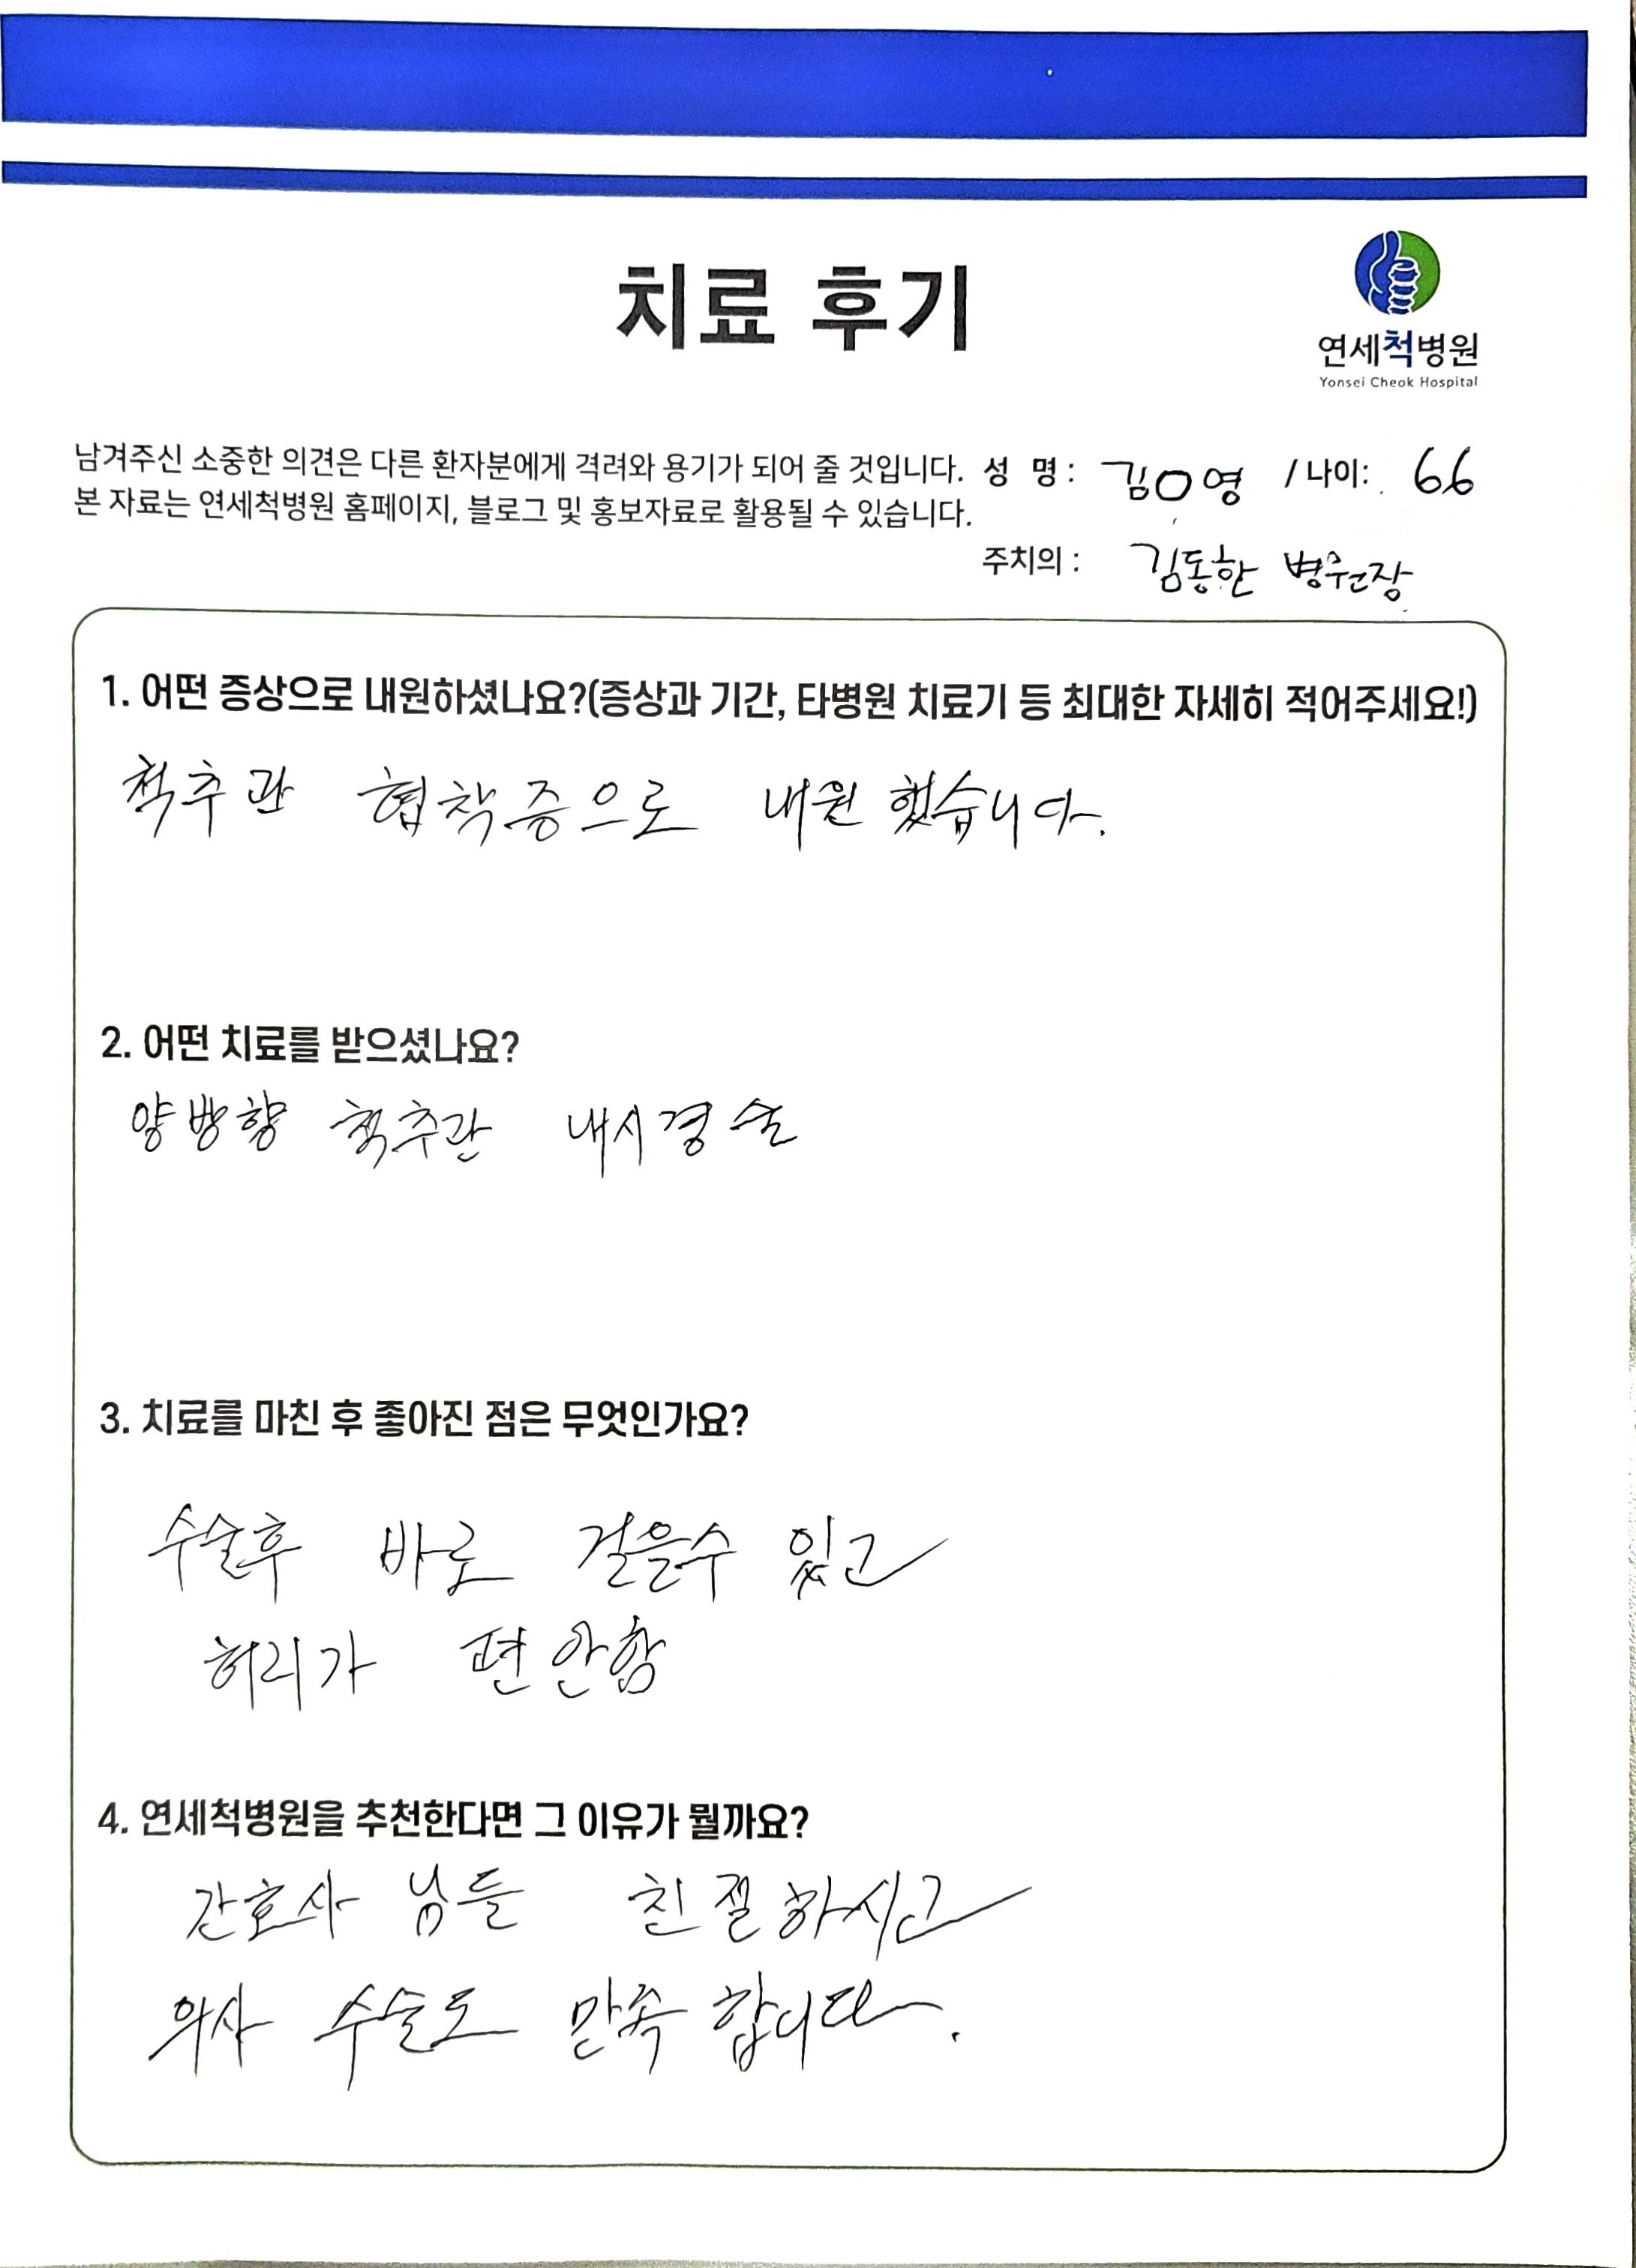 치료 후기
연세척병원
Yonsei Cheok Hospital
남겨주신 소중한 의견은 다른 환자분에게 격려와 용기가 되어 줄 것입니다. 성 명 : 김O영 / 나이: 66
본 자료는 연세척병원 홈페이지, 블로그 및 홍보자료로 활용될 수 있습니다.
주치의 : 김동한 병원장
1. 어떤 증상으로 내원하셨나요?(증상과 기간, 타병원 치료기 등 최대한 자세히 적어주세요!)
척추관 협착증으로 내원 했습니다.
2. 어떤 치료를 받으셨나요?
양방향 척추관 내시경술
3. 치료를 마친 후 좋아진 점은 무엇인가요?
수술후 바로 걸을수 있고
허리가 편안함
4. 연세척병원을 추천한다면 그 이유가 뭘까요?
간호사 님들 친절하시고
의사 수술도 만족 합니다.